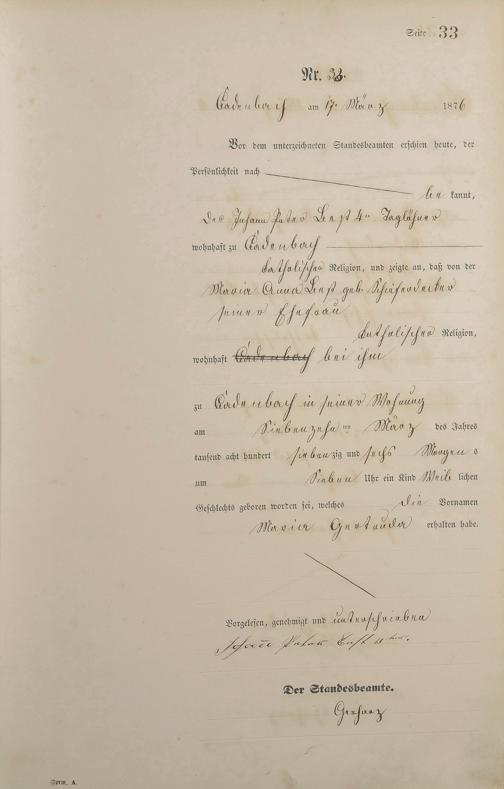 Seite 33
Nr. 33.
Cadenbach am 17. März 1876
Vor dem unterzeichneten Standesbeamten erschien heute, der
Persönlichkeit nach
be kannt,
der Johann Peter Best 4r Taglöhner
wohnhaft zu Cadenbach
katholischer Religion, und zeigte an, daß von der
Maria Anna Best geb. Schäferdecker
seiner Ehefrau
katholischer Religion,
wohnhaft Cadenbach bei ihm
zu Cadenbach in seiner Wohnung
am Siebenzehnten März des Jahres
tausend acht hundert siebenzig und sechs Morgens
um Sieben Uhr ein Kind Weiblichen
Geschlechts geboren worden sei, welches die Vornamen
Maria Gertruda erhalten habe.
Vorgelesen, genehmigt und unterschrieben
Johann Peter Best 4ter.
Der Standesbeamte.
Gerharz
Form. A.